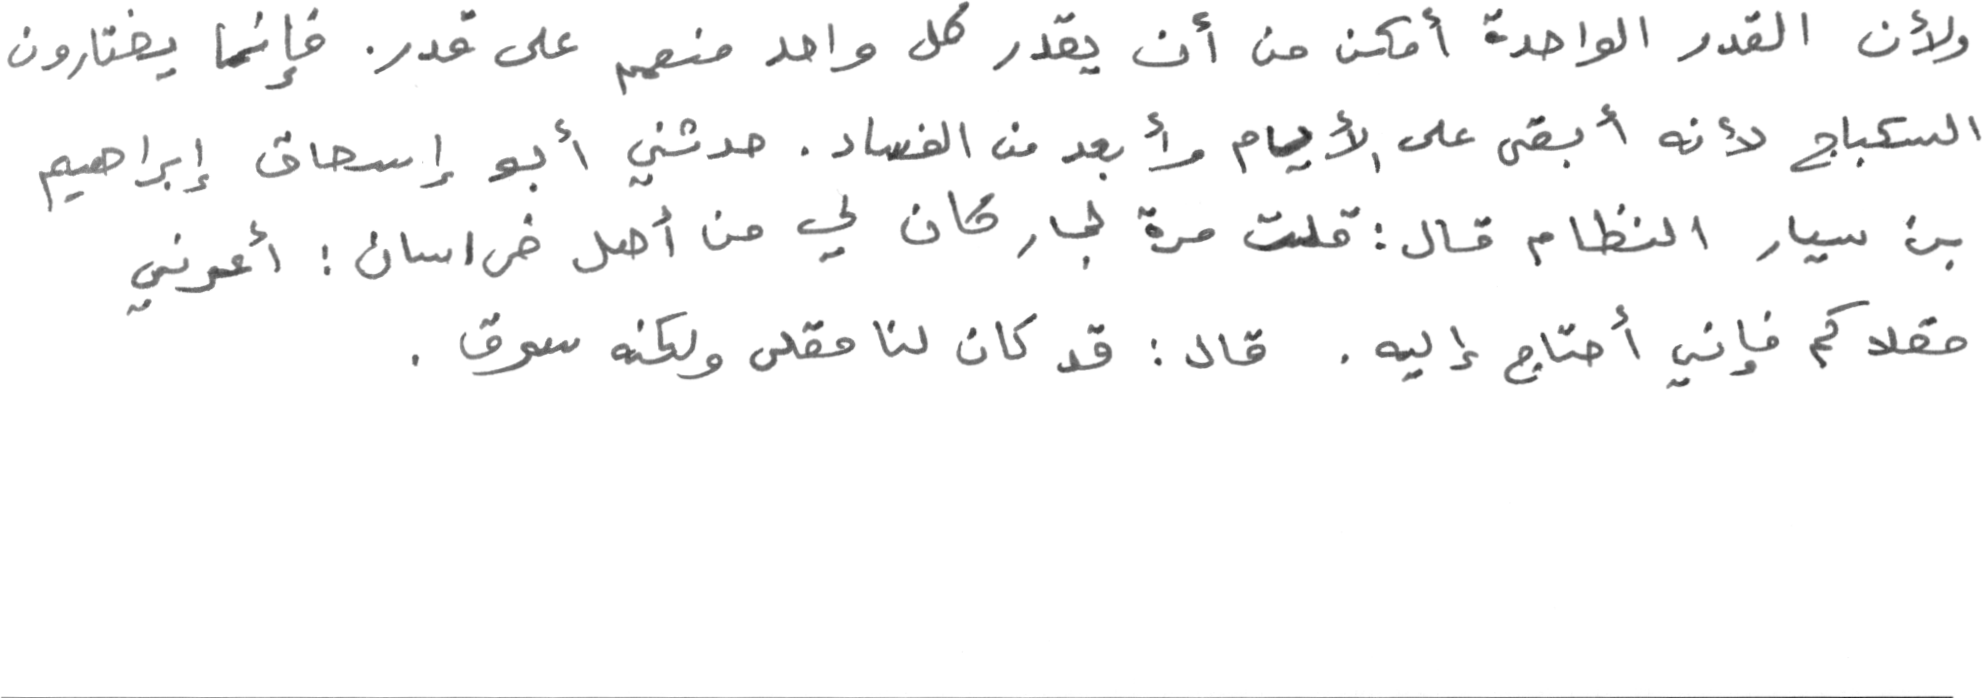 ولأن القدر الواحدة أمكن من أن يقدر كل واحد منهم على قدر. فإنما يختارون
السكباج لأنه أبقى على الأيام وأبعد من الفساد. حدثني أبو إسحاق إبراهيم
بن سيار النظام قال: قلت مرة لجار كان لي من أهل خراسان: أعرني
مقلاكم فإني أحتاج إليه. قال: قد كان لنا مقلى ولكنه سرق.